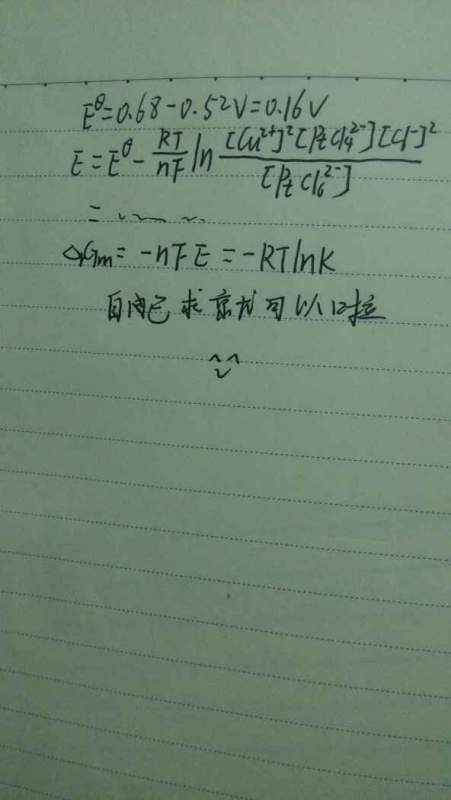 E^θ=0.68-0.52V=0.16V
E=E^θ-\frac{RT}{nF}ln\frac{[Cu^{2+}]^2[PtCl_4^{2-}][Cl^-]^2}{[PtCl_6^{2-}]}
=
△Gm=-nFE=-RTlnK
自己求就可以啦